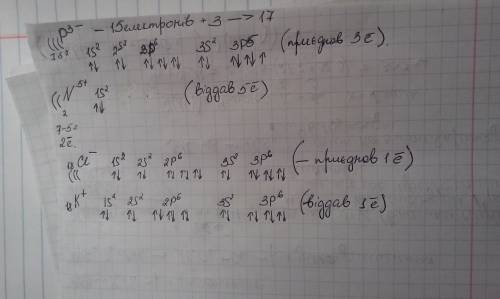 (((P³⁻ – 15електронів + 3 —> 17
1S² 2S² 2p⁶ 3S² 3p⁵ (приєднов 3ē).
↑↓ ↑↓ ↑↓ ↑↓ ↑↓ ↑↓ ↑↓ ↑↓ ↑
((N⁵⁺ 1S² (віддав 5ē)
2 ↑↓
7-5=
2ē.
18Cl⁻ 1S² 2S² 2p⁶ 3S² 3p⁶ (– приєднов 1ē)
((( ↑↓ ↑↓ ↑↓ ↑↓ ↑↓ ↑↓ ↑↓ ↑↓ ↑↓
18K⁺ 1S² 2S² 2p⁶ 3S² 3p⁶ (віддав 1ē)
↑↓ ↑↓ ↑↓ ↑↓ ↑↓ ↑↓ ↑↓ ↑↓ ↑↓